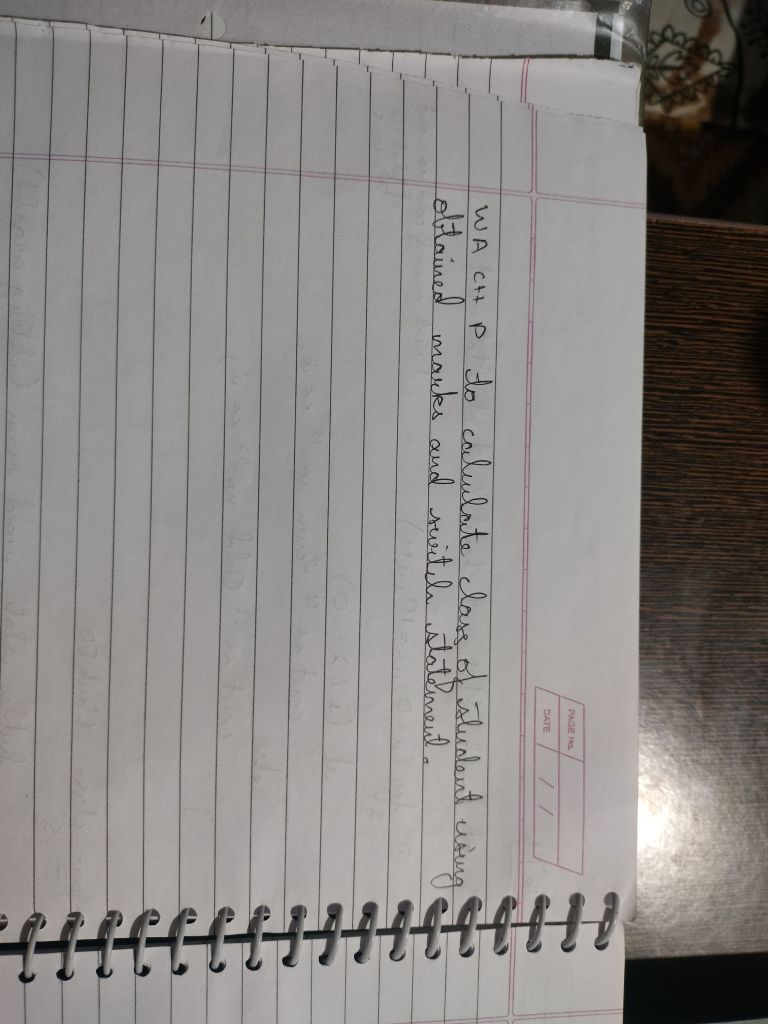 PAGE No.
DATE / /
WA C++ P to calculate class of student using
obtained marks and switch statement.